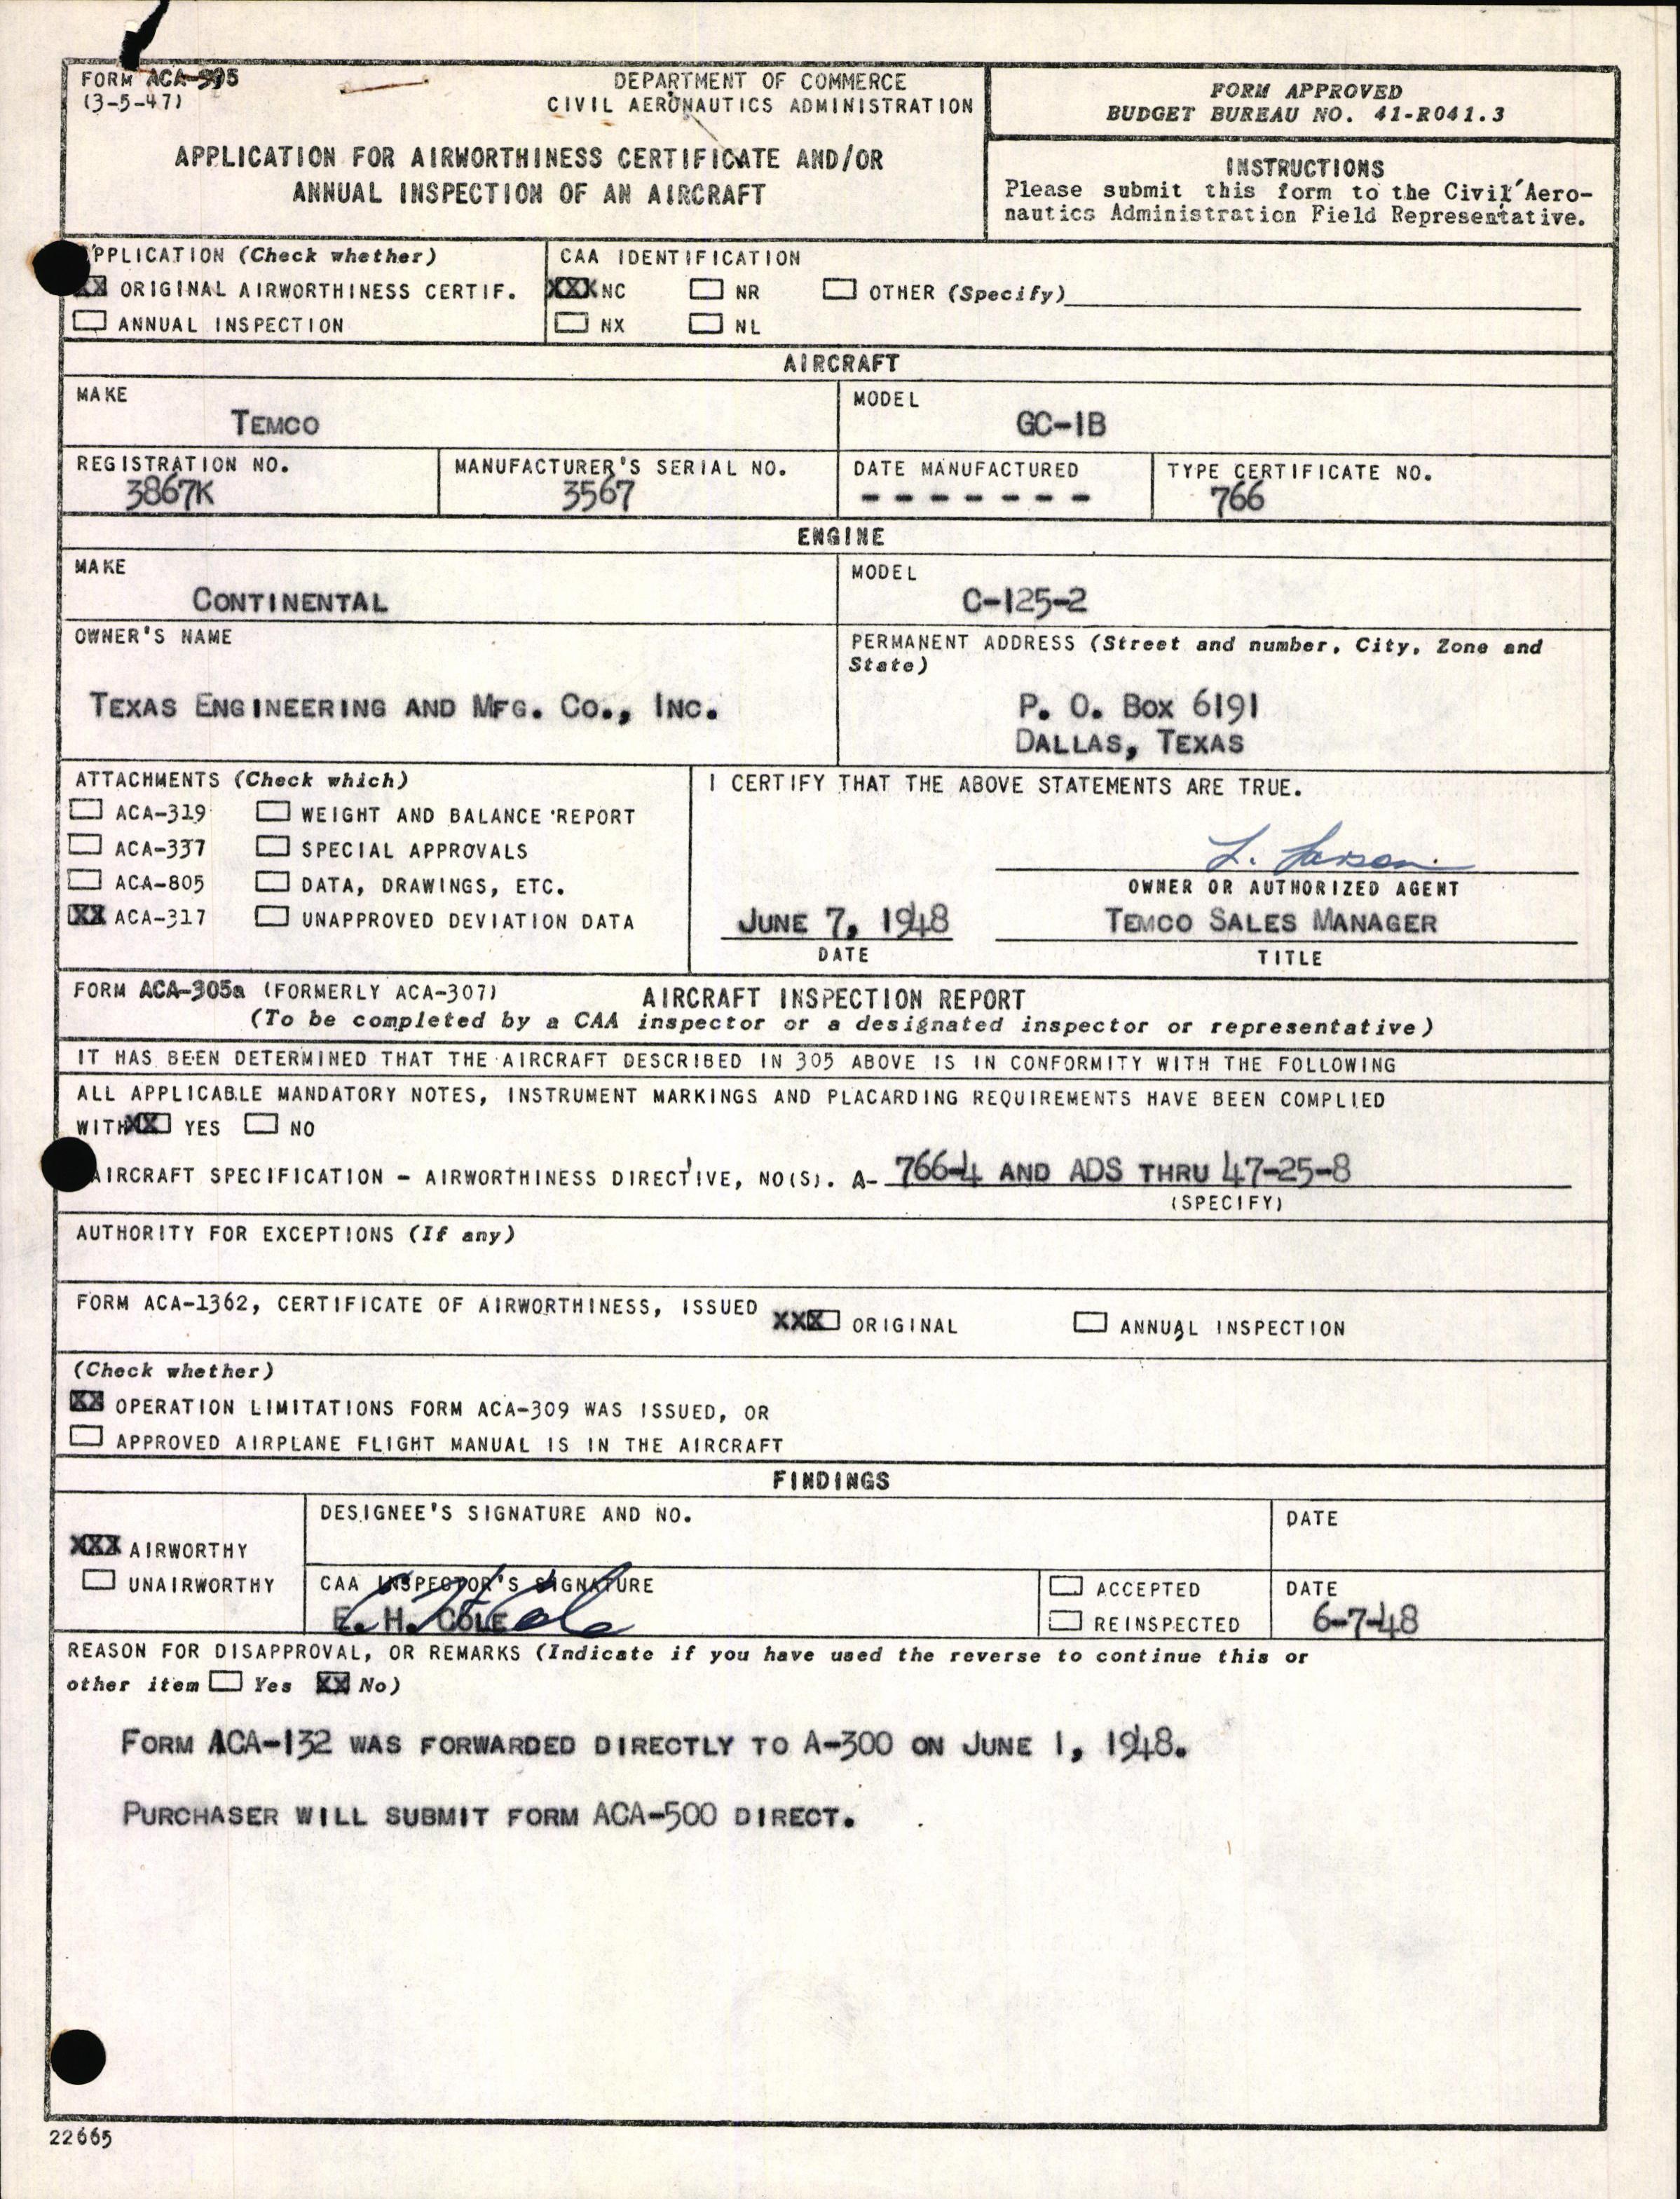 FORM ACA-305
(3-5-47)
DEPARTMENT OF COMMERCE
CIVIL AERONAUTICS ADMINISTRATION
APPLICATION FOR AIRWORTHINESS CERTIFICATE AND/OR
ANNUAL INSPECTION OF AN AIRCRAFT
FORM APPROVED
BUDGET BUREAU NO. 41-R041.3
INSTRUCTIONS
Please submit this form to the Civil Aero-
nautics Administration Field Representative.
APPLICATION (Check whether)
XX ORIGINAL AIRWORTHINESS CERTIF.
ANNUAL INSPECTION
CAA IDENTIFICATION
XXX NC NR OTHER (Specify)
NX NL
AIRCRAFT
MAKE
TEMCO
MODEL
GC-1B
REGISTRATION NO.
3867K
MANUFACTURER'S SERIAL NO.
3567
DATE MANUFACTURED
- - - - - - -
TYPE CERTIFICATE NO.
766
ENGINE
MAKE
CONTINENTAL
MODEL
C-125-2
OWNER'S NAME
TEXAS ENGINEERING AND MFG. CO., INC.
PERMANENT ADDRESS (Street and number, City, Zone and
State)
P. O. BOX 6191
DALLAS, TEXAS
ATTACHMENTS (Check which)
ACA-319 WEIGHT AND BALANCE REPORT
ACA-337 SPECIAL APPROVALS
ACA-805 DATA, DRAWINGS, ETC.
XX ACA-317 UNAPPROVED DEVIATION DATA
I CERTIFY THAT THE ABOVE STATEMENTS ARE TRUE.
L. Larson
OWNER OR AUTHORIZED AGENT
JUNE 7, 1948
DATE
TEMCO SALES MANAGER
TITLE
FORM ACA-305a (FORMERLY ACA-307) AIRCRAFT INSPECTION REPORT
(To be completed by a CAA inspector or a designated inspector or representative)
IT HAS BEEN DETERMINED THAT THE AIRCRAFT DESCRIBED IN 305 ABOVE IS IN CONFORMITY WITH THE FOLLOWING
ALL APPLICABLE MANDATORY NOTES, INSTRUMENT MARKINGS AND PLACARDING REQUIREMENTS HAVE BEEN COMPLIED
WITH XX YES NO
AIRCRAFT SPECIFICATION - AIRWORTHINESS DIRECTIVE, NO(S). A- 766-4 AND ADS THRU 47-25-8
(SPECIFY)
AUTHORITY FOR EXCEPTIONS (If any)
FORM ACA-1362, CERTIFICATE OF AIRWORTHINESS, ISSUED XXX ORIGINAL ANNUAL INSPECTION
(Check whether)
XX OPERATION LIMITATIONS FORM ACA-309 WAS ISSUED, OR
APPROVED AIRPLANE FLIGHT MANUAL IS IN THE AIRCRAFT
FINDINGS
XXX AIRWORTHY
UNAIRWORTHY
DESIGNEE'S SIGNATURE AND NO.
DATE
CAA INSPECTOR'S SIGNATURE
E. H. COLE
E H Cole
ACCEPTED
REINSPECTED
DATE
6-7-48
REASON FOR DISAPPROVAL, OR REMARKS (Indicate if you have used the reverse to continue this or
other item Yes XX No)
FORM ACA-132 WAS FORWARDED DIRECTLY TO A-300 ON JUNE 1, 1948.
PURCHASER WILL SUBMIT FORM ACA-500 DIRECT.
22665